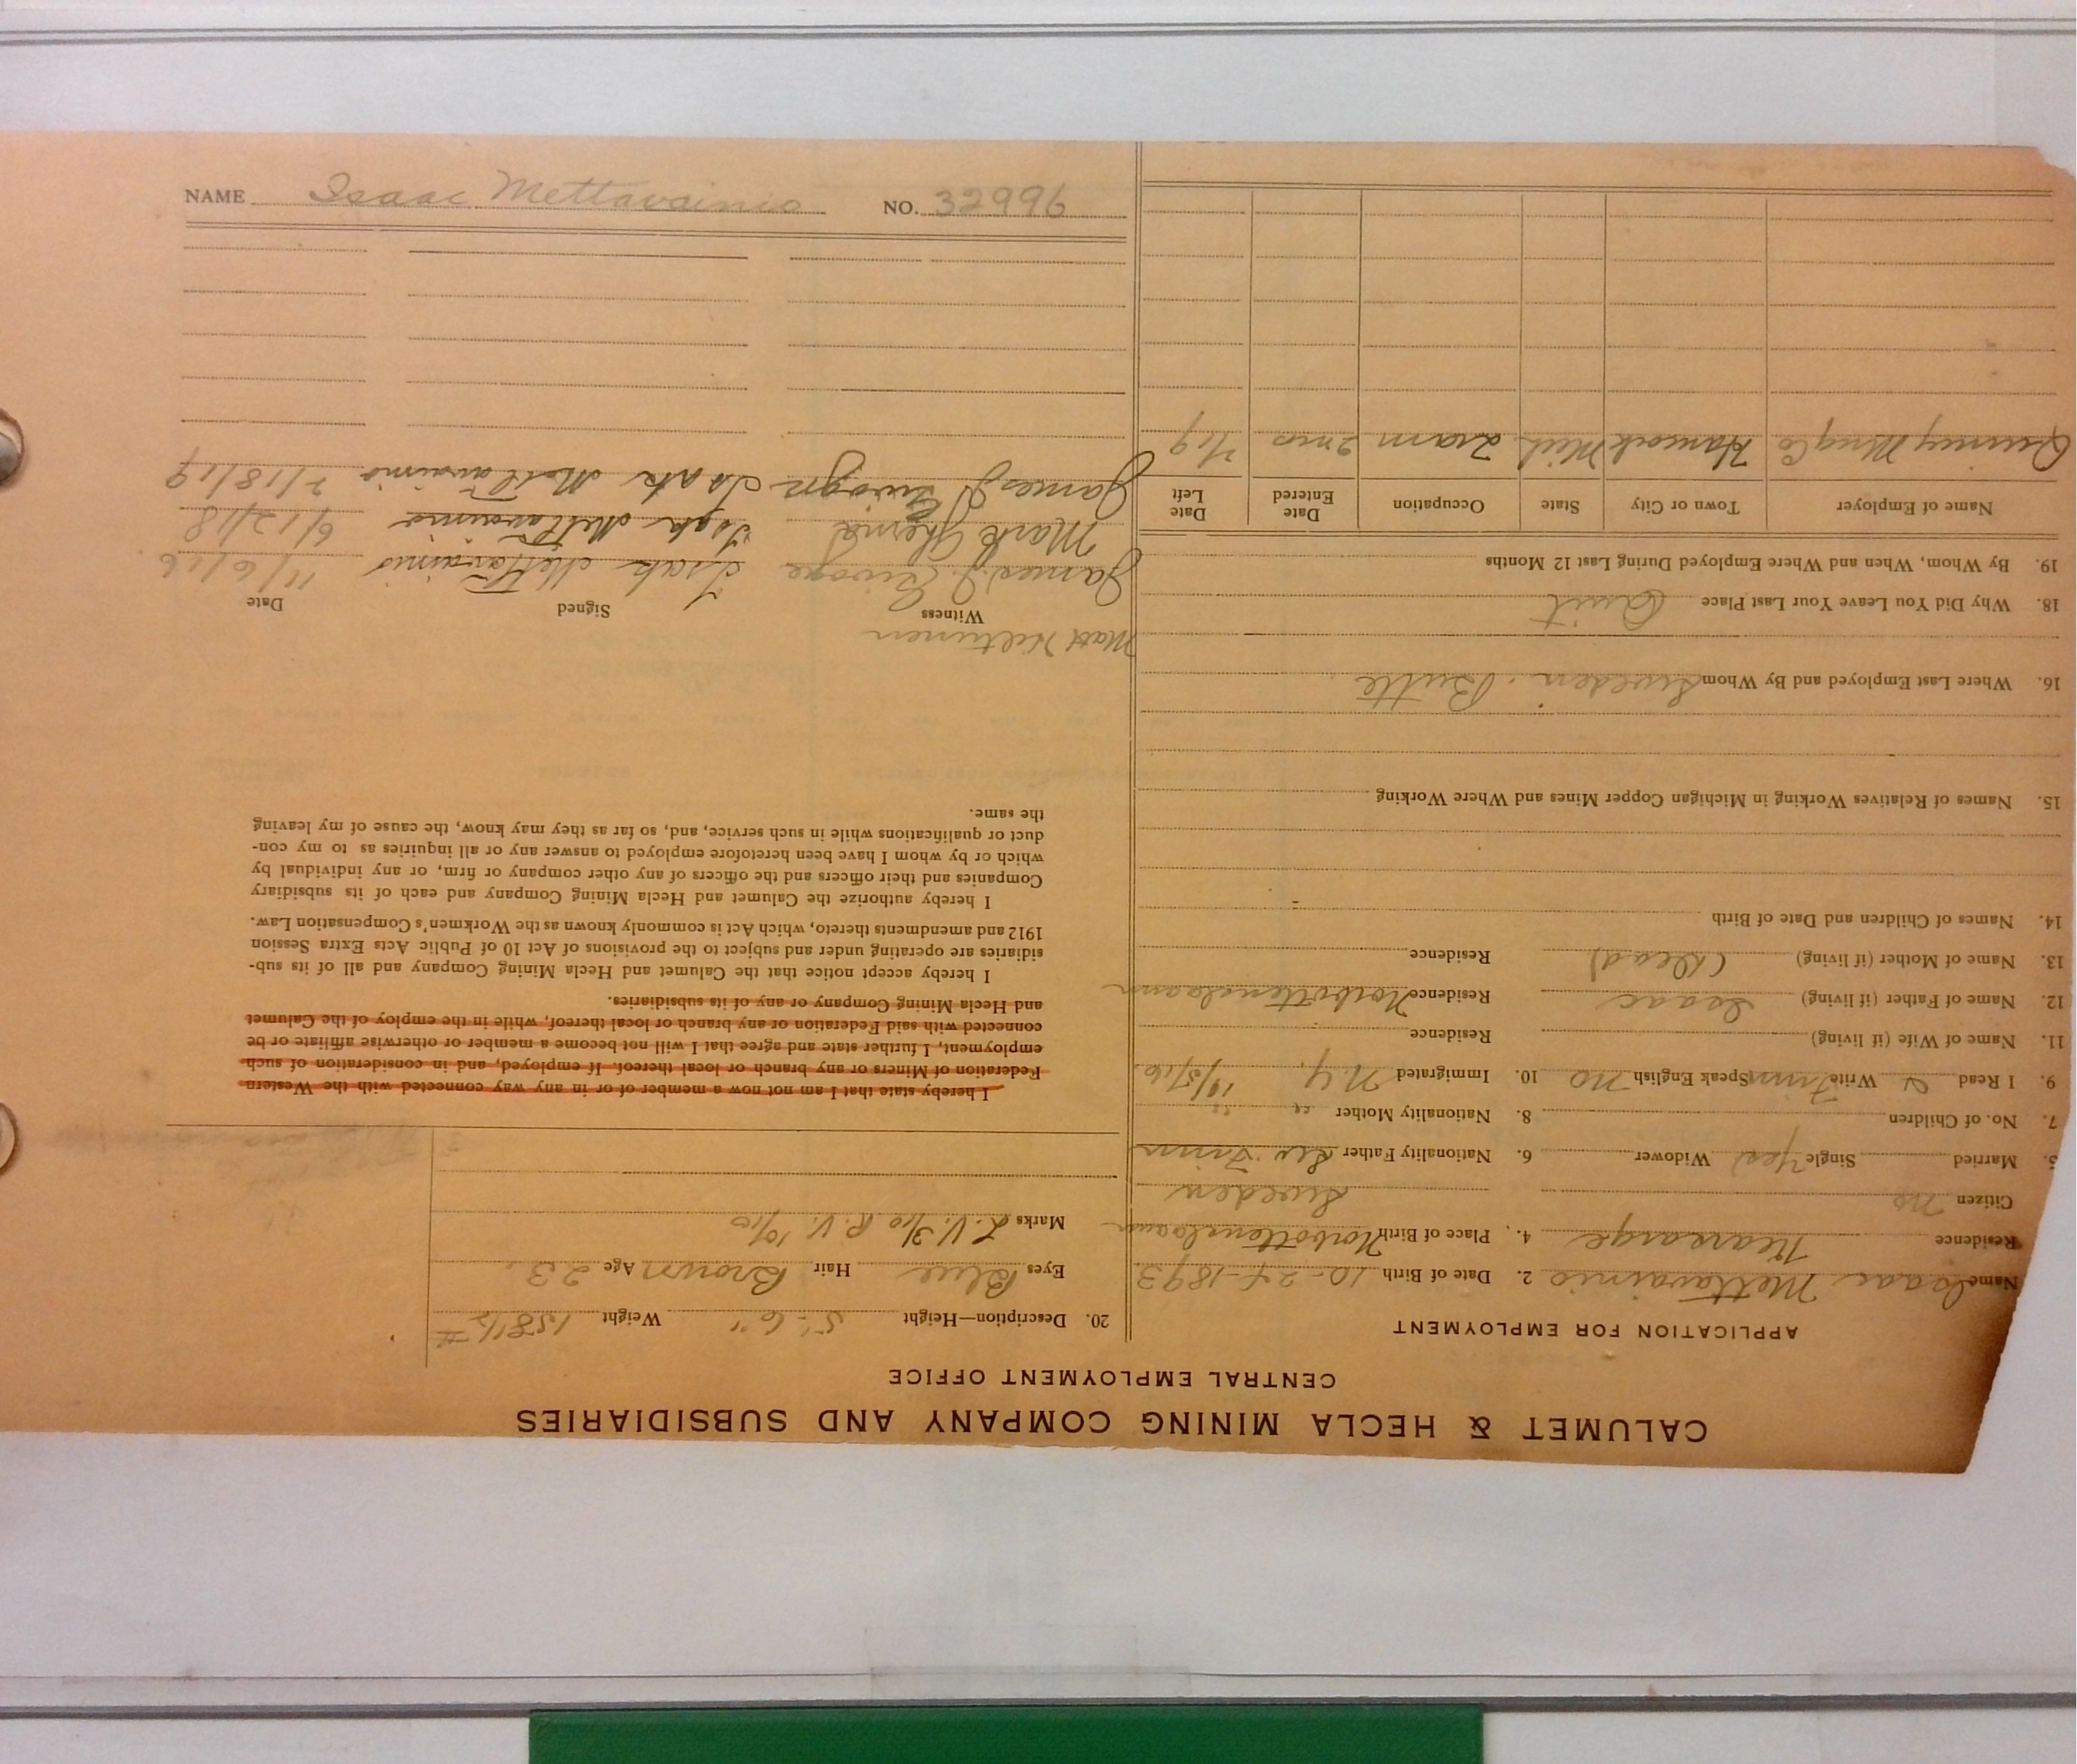 CALUMET & HECLA MINING COMPANY AND SUBSIDIARIES
CENTRAL EMPLOYMENT OFFICE
APPLICATION FOR EMPLOYMENT
Name Isaac Mettavainio 2. Date of Birth 10-24-1893
Residence Kearsarge 4. Place of Birth Norbottenslaan
Citizen no Sweden
5. Married Single Yes Widower 6. Nationality Father Sw. Finn
7. No. of Children 8. Nationality Mother " "
9. I Read & Write Finn Speak English no 10. Immigrated N.Y. 10/5/16
11. Name of Wife (if living) Residence
12. Name of Father (if living) Isaac Residence Norbottenslaan
13. Name of Mother (if living) (Dead) Residence
14. Names of Children and Date of Birth
15. Names of Relatives Working in Michigan Copper Mines and Where Working
16. Where Last Employed and By Whom Sweden. Butte
18. Why Did You Leave Your Last Place Quit
19. By Whom, When and Where Employed During Last 12 Months
Name of Employer Town or City State Occupation Date Entered Date Left
Quincy Mng Co Hancock Mich Tram 2 mo 7/19
20. Description—Height 5'-6" Weight 158 1/2 #
Eyes Blue Hair Brown Age 23
Marks L.V. 3/10 R.V. 10/10
I hereby state that I am not now a member of or in any way connected with the Western
Federation of Miners or any branch or local thereof. If employed, and in consideration of such
employment, I further state and agree that I will not become a member or otherwise affiliate or be
connected with said Federation or any branch or local thereof, while in the employ of the Calumet
and Hecla Mining Company or any of its subsidiaries.
I hereby accept notice that the Calumet and Hecla Mining Company and all of its sub-
sidiaries are operating under and subject to the provisions of Act 10 of Public Acts Extra Session
1912 and amendments thereto, which Act is commonly known as the Workmen's Compensation Law.
I hereby authorize the Calumet and Hecla Mining Company and each of its subsidiary
Companies and their officers and the officers of any other company or firm, or any individual by
which or by whom I have been heretofore employed to answer any or all inquiries as to my con-
duct or qualifications while in such service, and, so far as they may know, the cause of my leaving
the same.
Matt
Witness Signed Date
James J. Isak Mettavainio 11/6/16
Mark Isak Mettavainio 6/12/18
James J. Isak Mettavainio 7/18/19
NAME Isaac Mettavainio NO. 32996